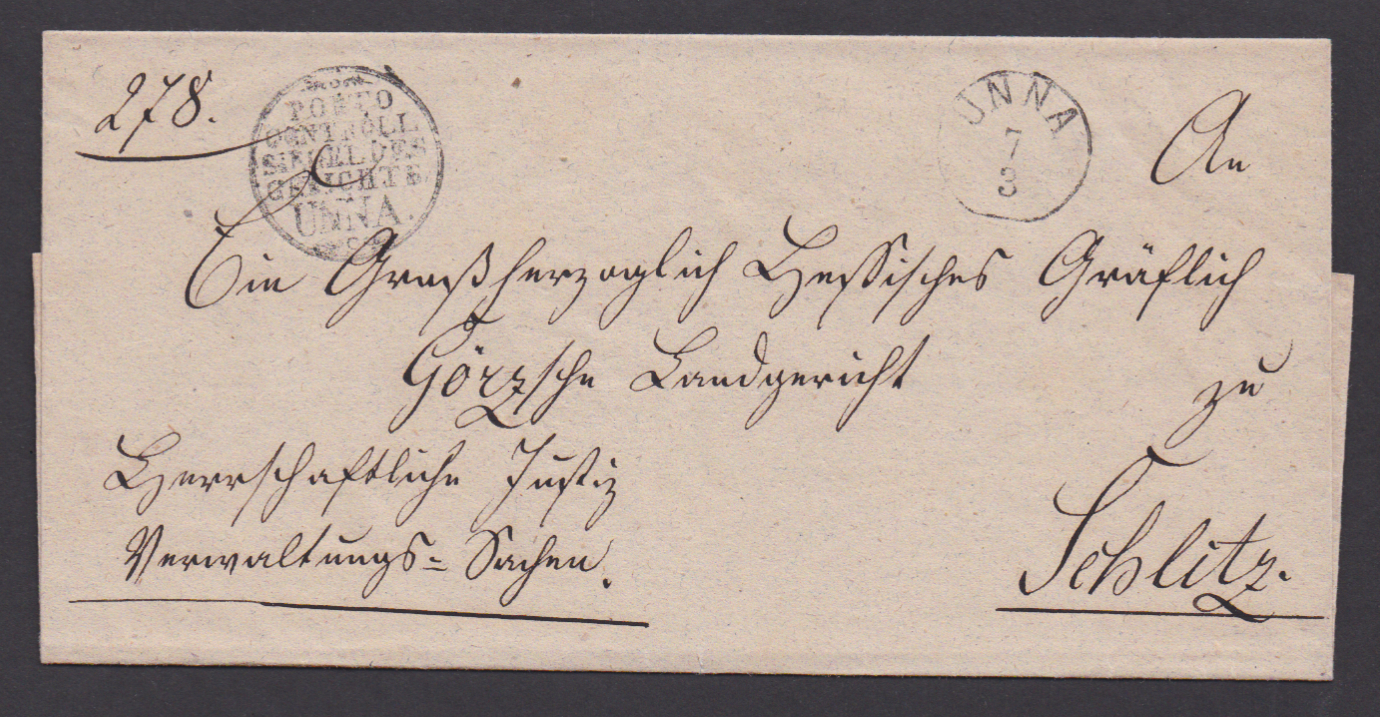 278.
PORTO
CONTROLL
SIEGEL DES
GERICHTS
UNNA.
UNNA
7
3
An
Ein Großherzoglich Hessisches Gräflich
Görzsche Landgericht
zu
Schlitz.
Herrschaftliche Justiz
Verwaltungs= Sachen.